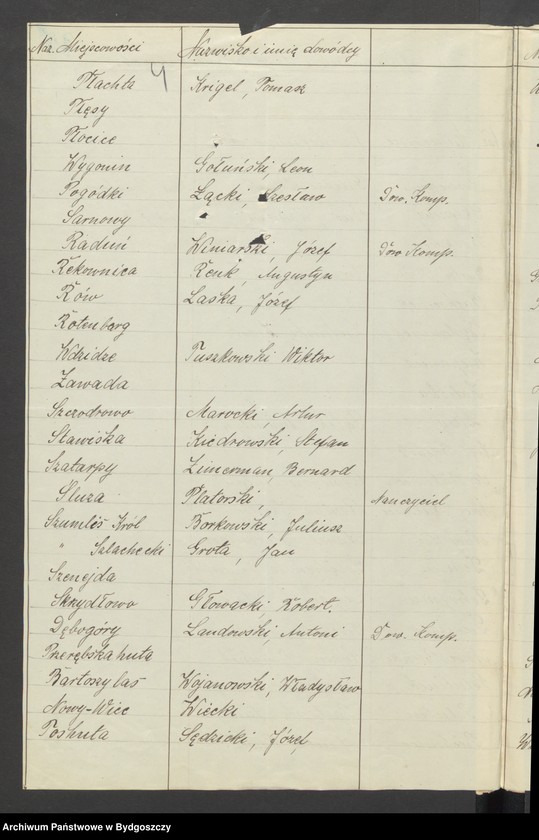 Naz. Miejscowości Nazwisko i imię dowódcy
4
Płachta Krigel, Tomasz
Płęsy
Płocice
Wygonin Gołuński, Leon
Pogódki Łącki, Czesław Dow. Komp.
Sarnowy
Raduń Winiarski, Józef Dow. Komp.
Rekownica Renk, Augustyn
Rów Laska, Józef
Rotenberg
Wdzidze Tuszkowski Wiktor
Zawada
Szczodrowo Marocki, Artur
Stawiska Kiedrowski, Stefan
Szatarpy Zimerman, Bernard
Śluza Platorski, Nauczyciel
Szumleś Król Borkowski, Juliusz
" Szlachecki Grota, Jan
Szenejda
Skrydłowo Głowacki Robert.
Dębogóry Landowski, Antoni Dow. Komp.
Przerębska huta
Bartoszylas Wojanowski, Władysław
Nowy-Wiec Wiecki
Poshuta Sędzicki, Józef
Archiwum Państwowe w Bydgoszczy